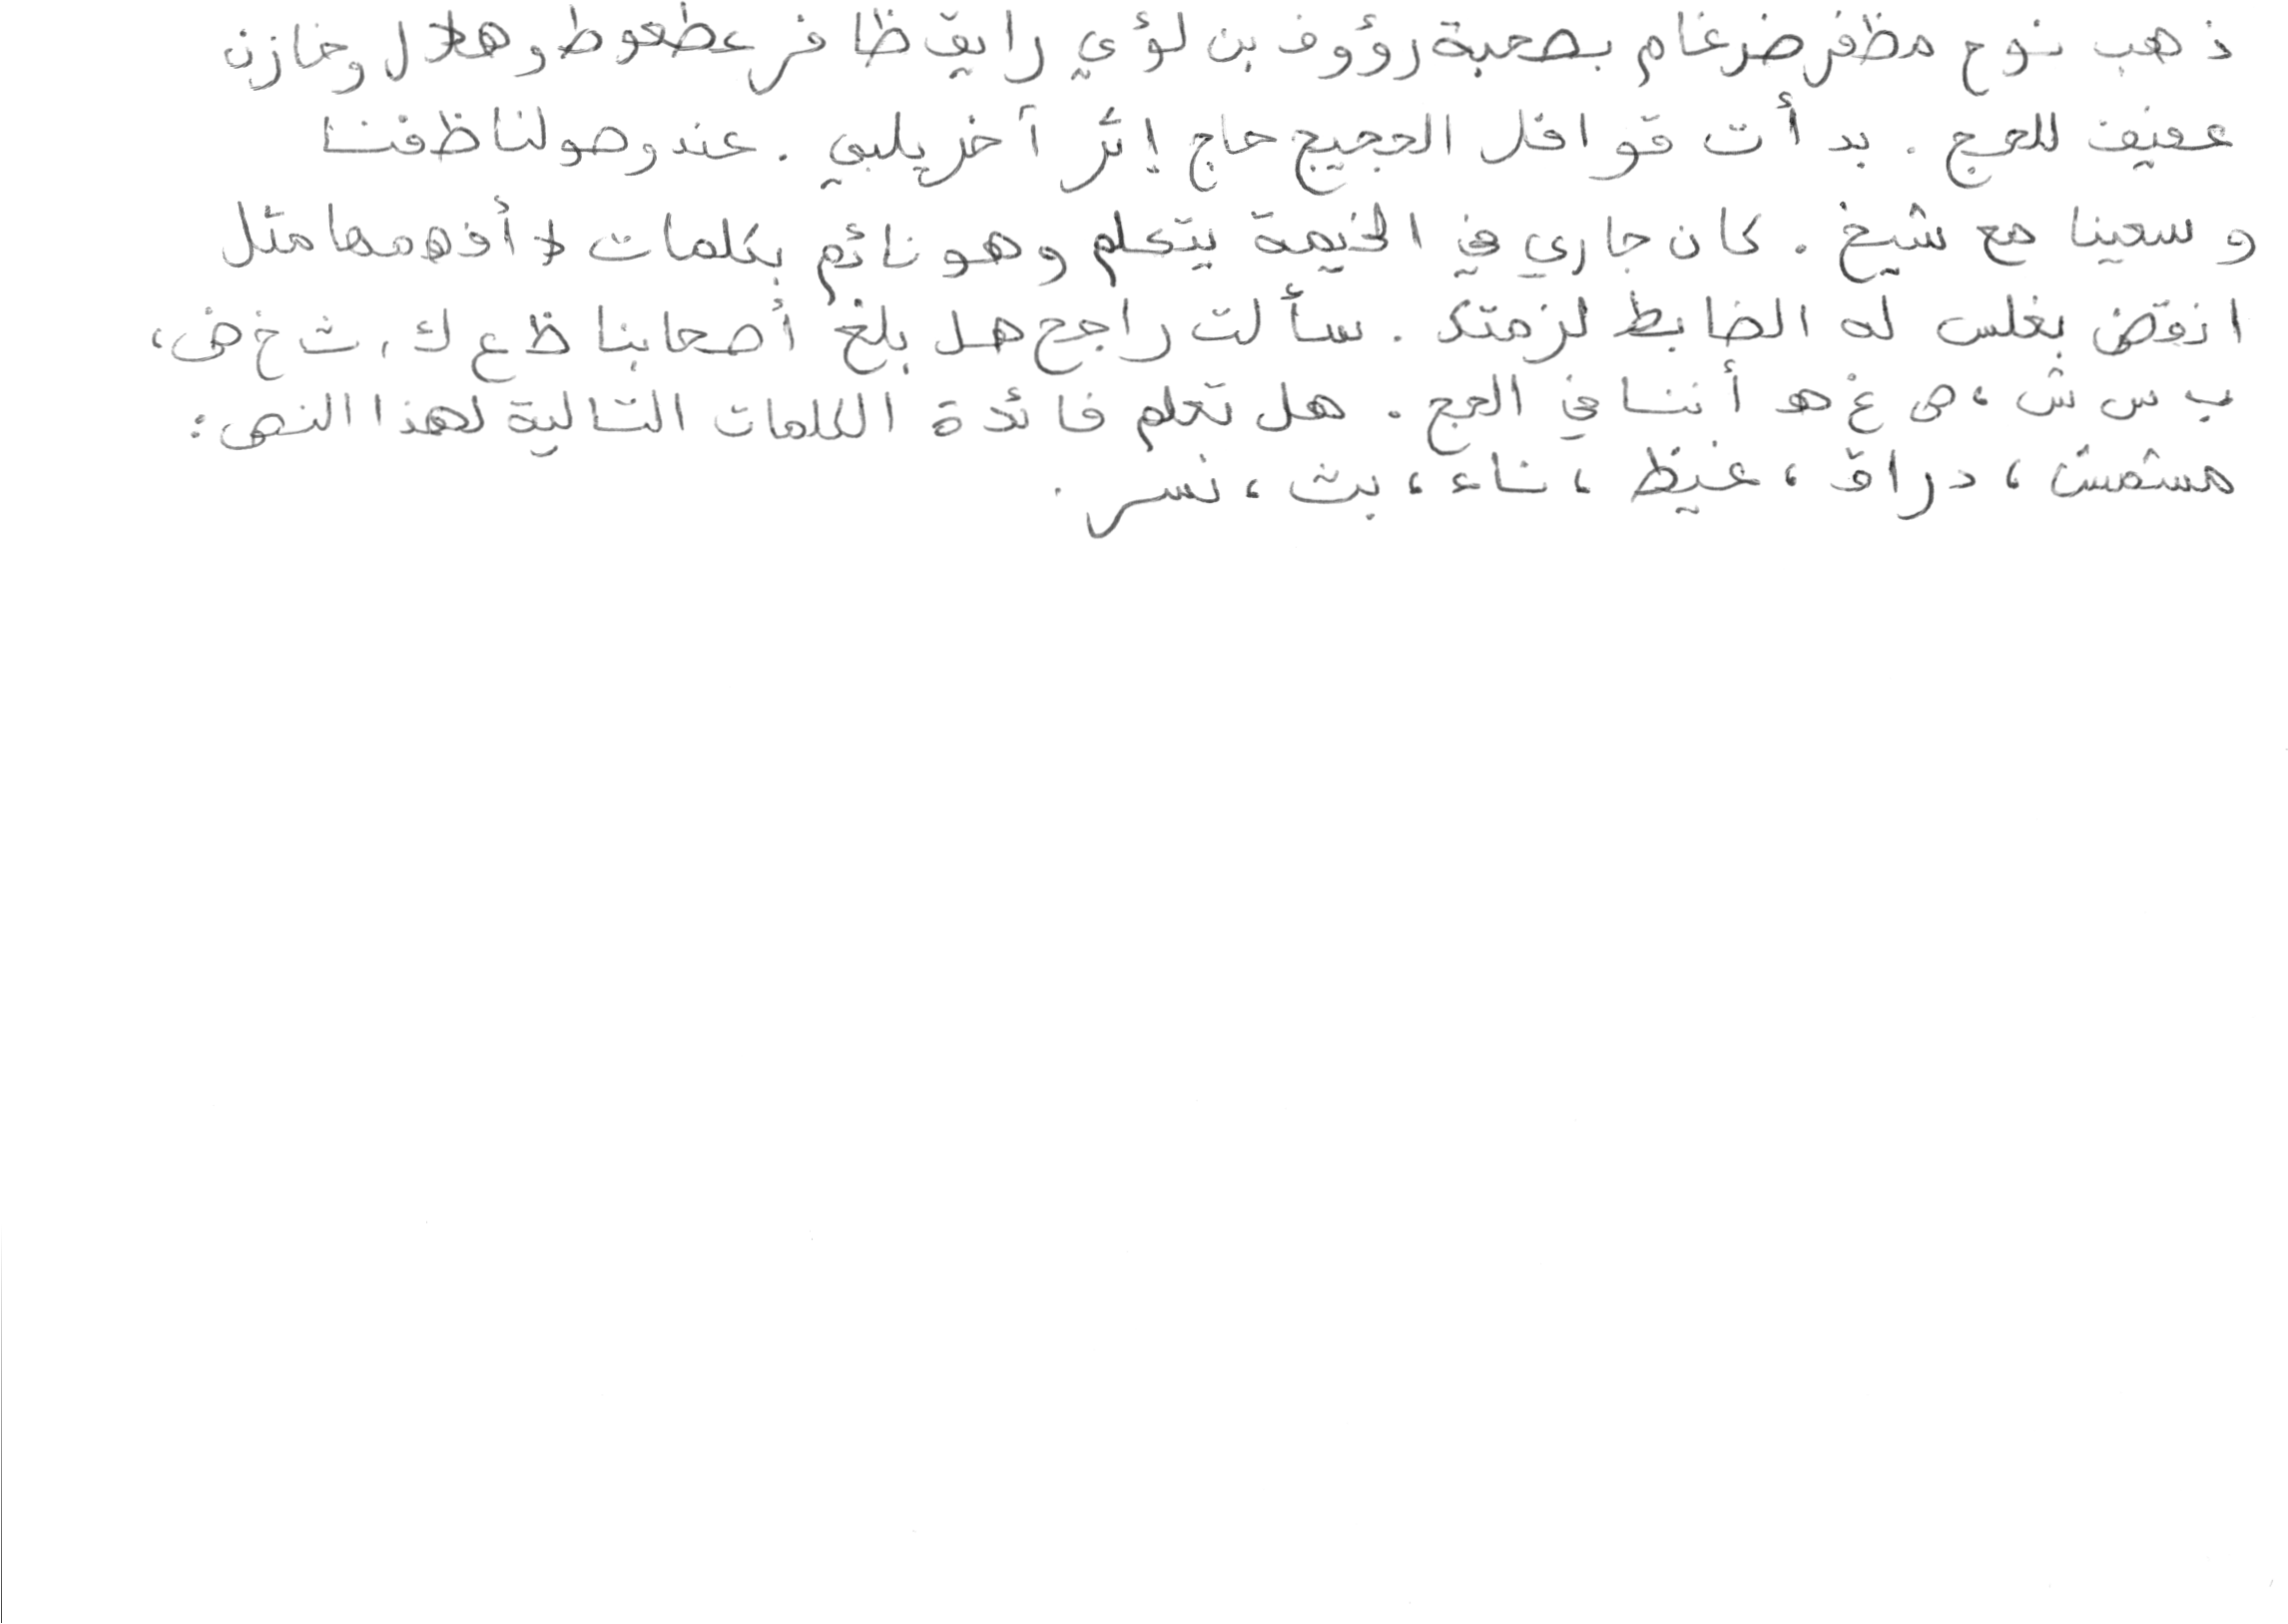 ذهب نوح مظفر ضرغام بصحبة رؤوف بن لؤي رايق ظافر عطعوط وهلال وخازن
عفيف للحج . بدأت قوافل الحجيج حاج إثر آخر يلبي . عند وصولنا ظفنا
وسعينا مع شيخ . كان جاري في الخيمة يتكلم وهو نائم بكلمات لا أفهمها مثل
انقض بغلس له الضابط لزمتك . سألت راجح هل بلغ أصحابنا ظ ع ك ، ث خ ض ،
ب س ش ، ص غ هو أننا في الحج . هل تعلم فائدة الكلمات التالية لهذا النص :
مستمش ، دراق ، غيظ ، ناء ، بث ، نسر .